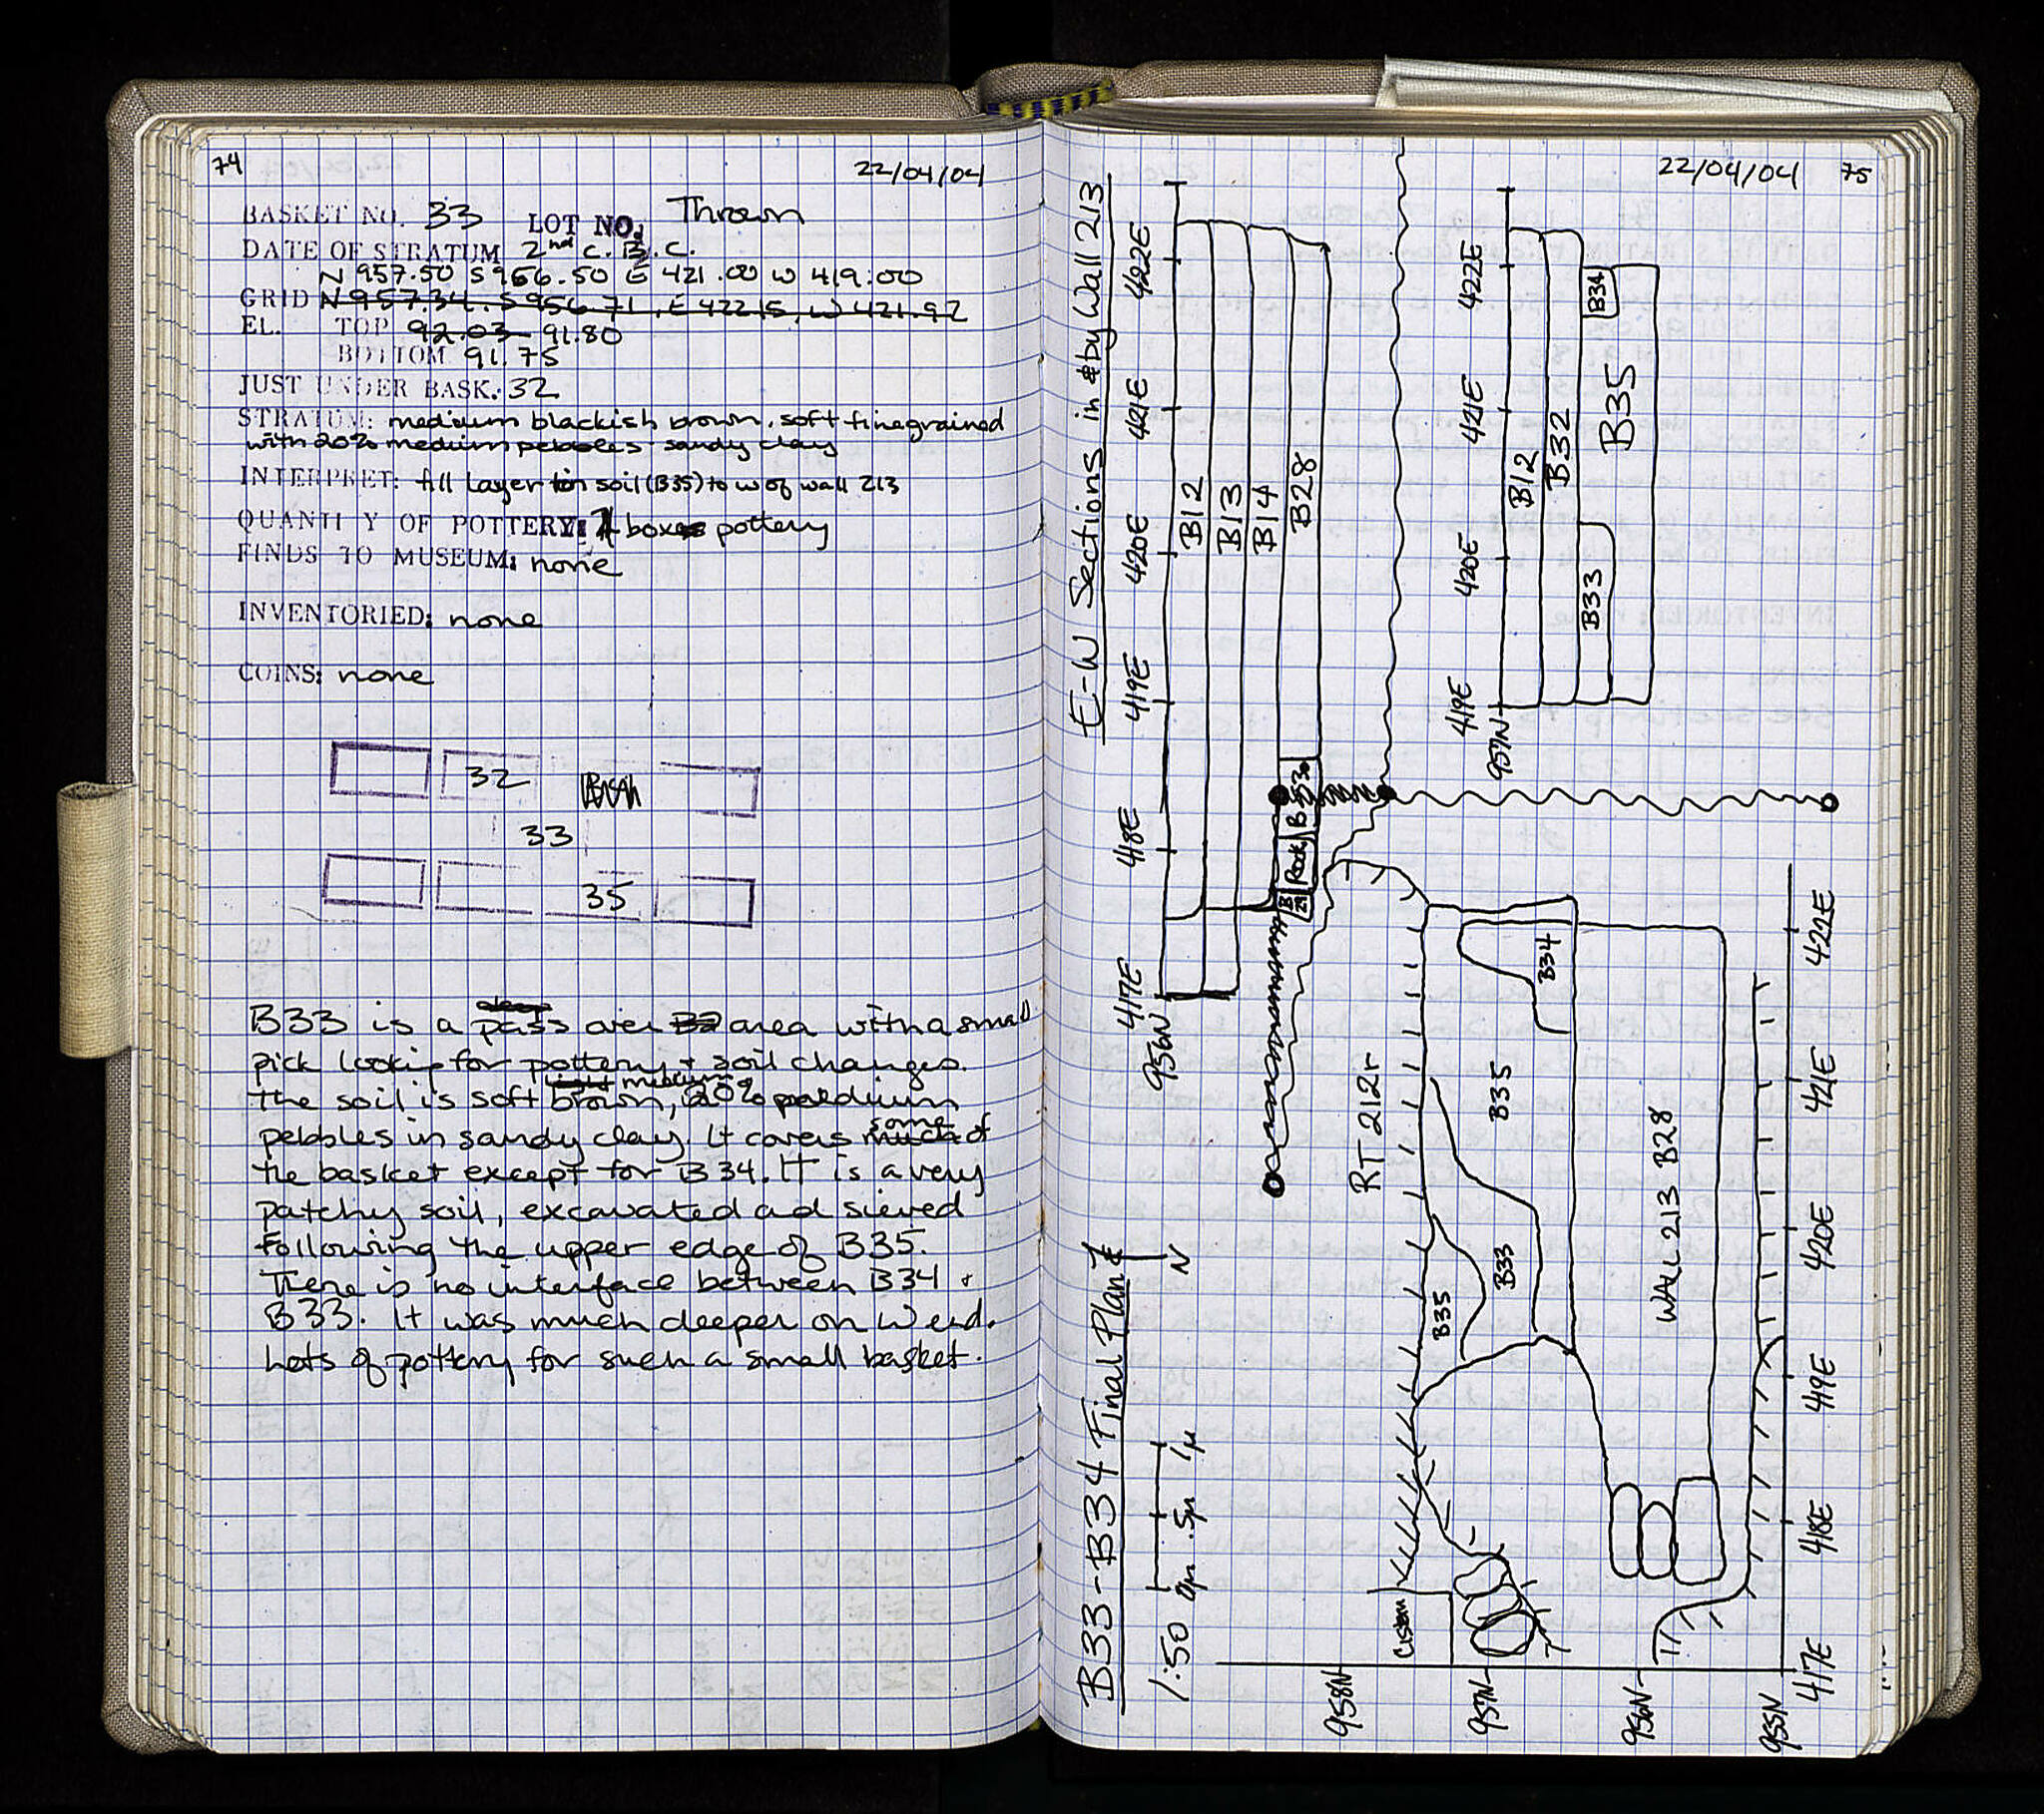 74
22/04/04
BASKET NO. 33 LOT NO. Thrown
DATE OF STRATUM 2nd C. B. C.
N 957.50 S 956.50 E 421.00 W 419.00
GRID N 957.34. S 956.71, E 422.15, W 421.92
EL. TOP 92.03 91.80
BOTTOM 91.75
JUST UNDER BASK. 32
STRATUM: medium blackish brown, soft finegrained
with 20% medium pebbles sandy clay
INTERPRET: fill layer in soil (B35) to W of wall 213
QUANTITY OF POTTERY: 1 box pottery
FINDS TO MUSEUM: none
INVENTORIED: none
COINS: none
32
33
35
B33 is a pass over area with a small
pick looking for pottery + soil changes.
medium
the soil is soft brown, 20%
some
pebbles in sandy clay. It covers of
the basket except for B34. It is a very
patchy soil, excavated ad sieved
following the upper edge of B35.
There is no interface between B34 +
B33. It was much deeper on W end.
Lots of pottery for such a small basket.
22/04/04
75
E-W Sections in & by Wall 213
417E 418E 419E 420E 421E 422E
956N
B12
B13
B14
B28
B29 Rock B30
419E 420E 421E 422E
957N
B12
B32
B33 B34
B35
B33-B34 Final Plan
N
1:50 0m .5m 1m
RT 212r
Cistern
B35
B33
B35
B34
WALL 213 B28
958N
957N
956N
955N
417E 418E 419E 420E 421E 422E